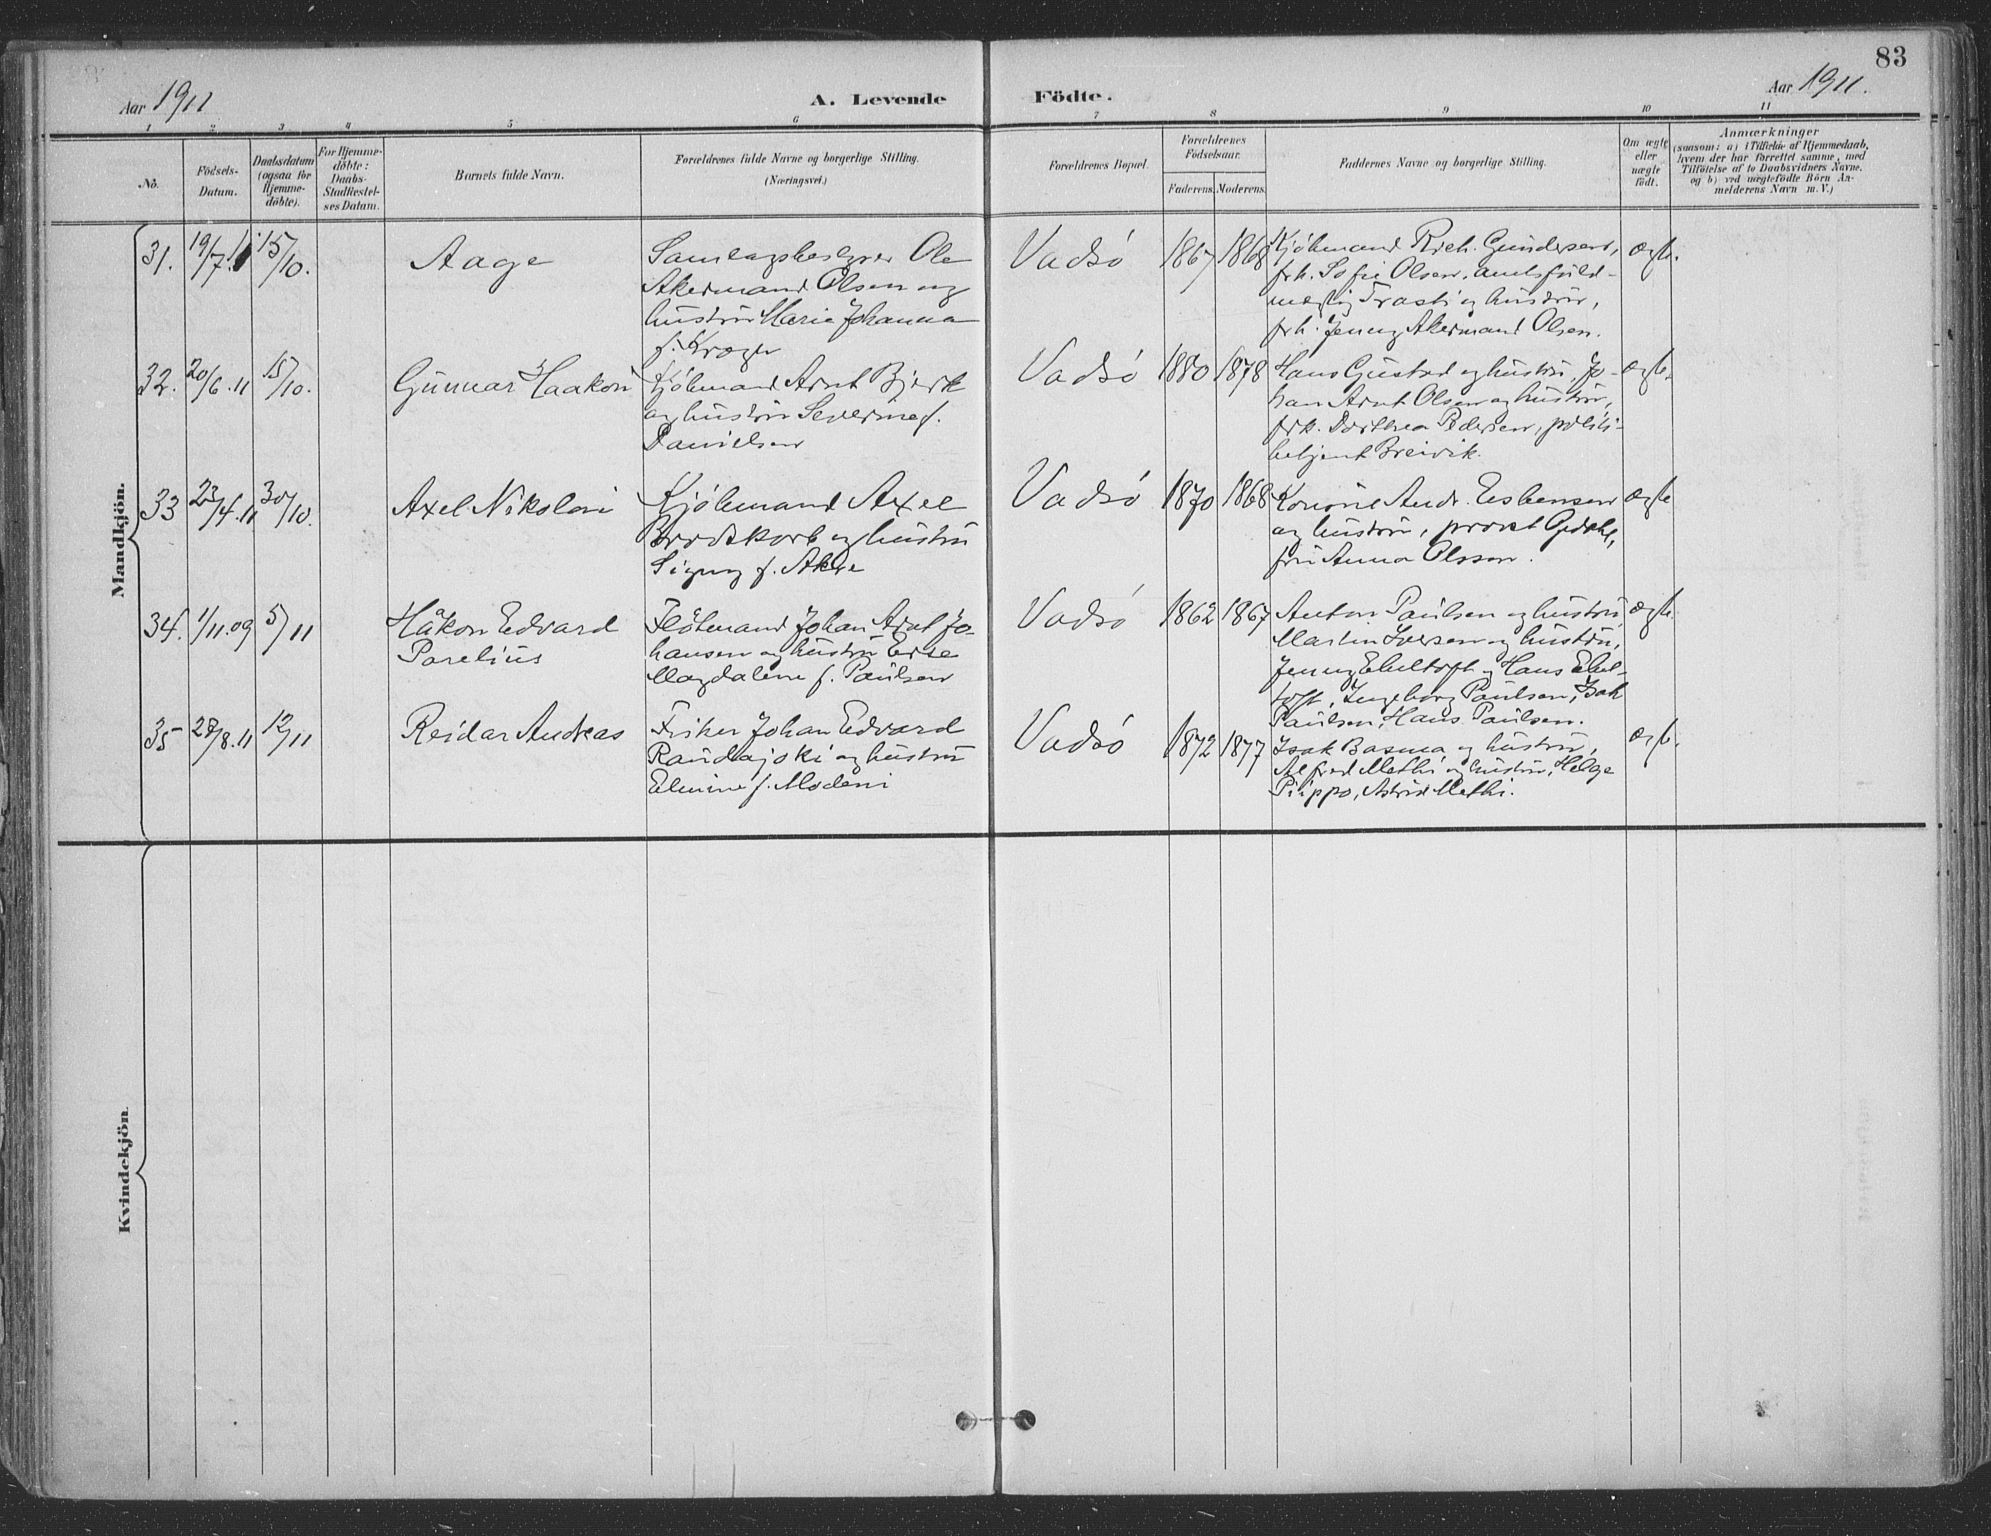 83
Aar 1911
A. Levende Födte.
Aar 1911.
1 2 3 4 5 6 7 8 9 10 11
No.
Födsels-
Datum.
Daabsdatum
(ogsaa for
Hjemme-
döbte).
For Hjemme-
döbte:
Daabs-
Stadfæstel-
ses Datum.
Barnets fulde Navn.
Forældrenes fulde Navne og borgerlige Stilling.
(Næringsvei.)
Forældrenes Bopæl.
Forældrenes
Födselsaar.
Faderens. Moderens.
Faddernes Navne og borgerlige Stilling.
Om ægte
eller
uægte
födt.
Anmærkninger
(saasom: a) i Tilfælde af Hjemmedaab,
hvem der har forrettet samme, med
Tilföielse af to Daabsvidners Navne,
og b) ved uægtefödte Börn An-
melderens Navn m. V.)
Mandkjön.
31. 19/7 11 15/10. Aage
Samlagsbestyrer Ole
Akermand Olsen og
hustru Marie Johanna
f. Krøger
Vadsö 1867 1868
Kjøbmand Rich. Gundersen,
frk. Sofie Olsen, amtsfuld-
mægtig Trasti og hustru,
frk. Jenny Akermand Olsen.
ægte.
32. 20/6.11 15/10. Gunnar Haakon
Kjöbmand Arnt Bjerk
og hustru Severine f.
Danielsen
Vadsö 1880 1878
Hans Gjustad og hustru, Jo-
han Arnt Olsen og hustru,
frk. Dorthea Pedersen, politi-
betjent Breivik.
ægte.
33 23/4.11 30/10. Axel Nikolai
Kjöbmand Axel
Brodtkorb og hustru
Signy f. Akre
Vadsö 1870 1868
Konsul Andr. Esbensen
og hustru, provst Gjöl,
fru Anna Olsson.
ægte
34. 1/11.09 5/11 Håkon Edvard
Parelius
Flötmand Johan Arnt Jo-
hansen og hustru Else
Magdalene f. Paulsen
Vadsö 1862 1867
Anton Paulsen og hustru,
Martin Iversen og hustru,
Jenny Ebeltoft og Hans Ebel-
toft, Ingeborg Paulsen, Isak
Paulsen, Hans Paulsen.
ægte.
35 28/8.11 12/11 Reidar Andreas
Fisker Johan Edvard
Raudajoki og hustru
Elmine f. Modeni
Vadsö 1872 1877
Isak Basma og hustru,
Alfred Methi og hustru, Helge
Piippo, Astrid Methi.
ægte.
Kvindekjön.